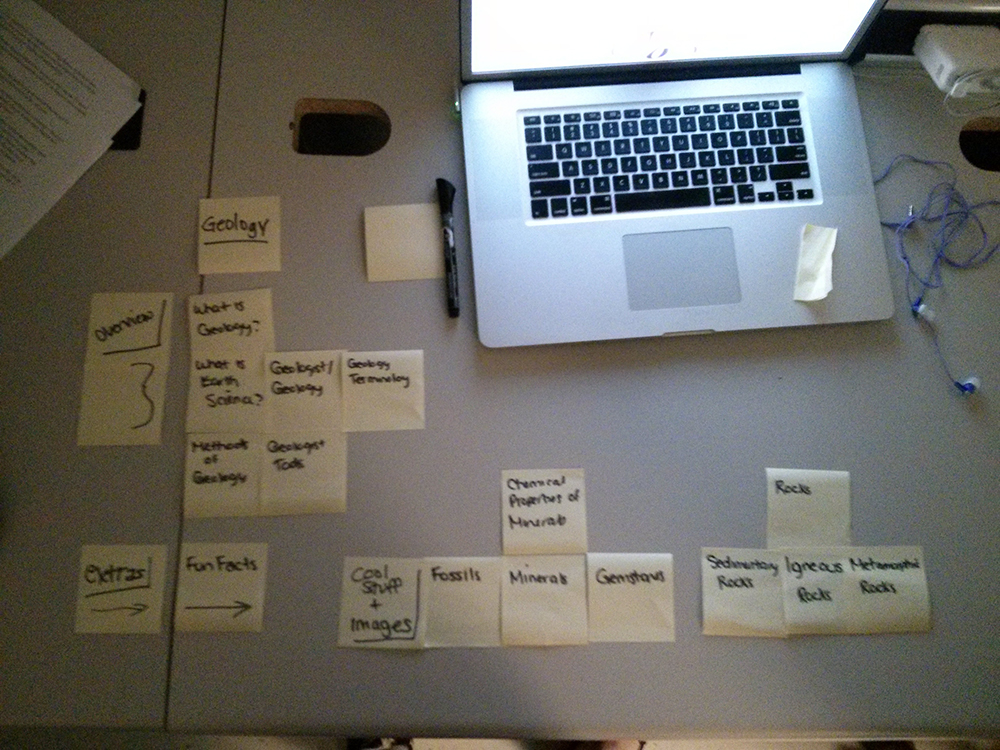 Geology
Overview
What is
Geology?
What is
Earth
Science?
Geologist/
Geology
Geology
Terminology
Methods
of
Geology
Geologist
Tools
Chemical
Properties of
Minerals
Rocks
extras
Fun Facts
Cool
Stuff
+
Images
Fossils
Minerals
Gemstones
Sedimentary
Rocks
Igneous
Rocks
Metamorphic
Rocks